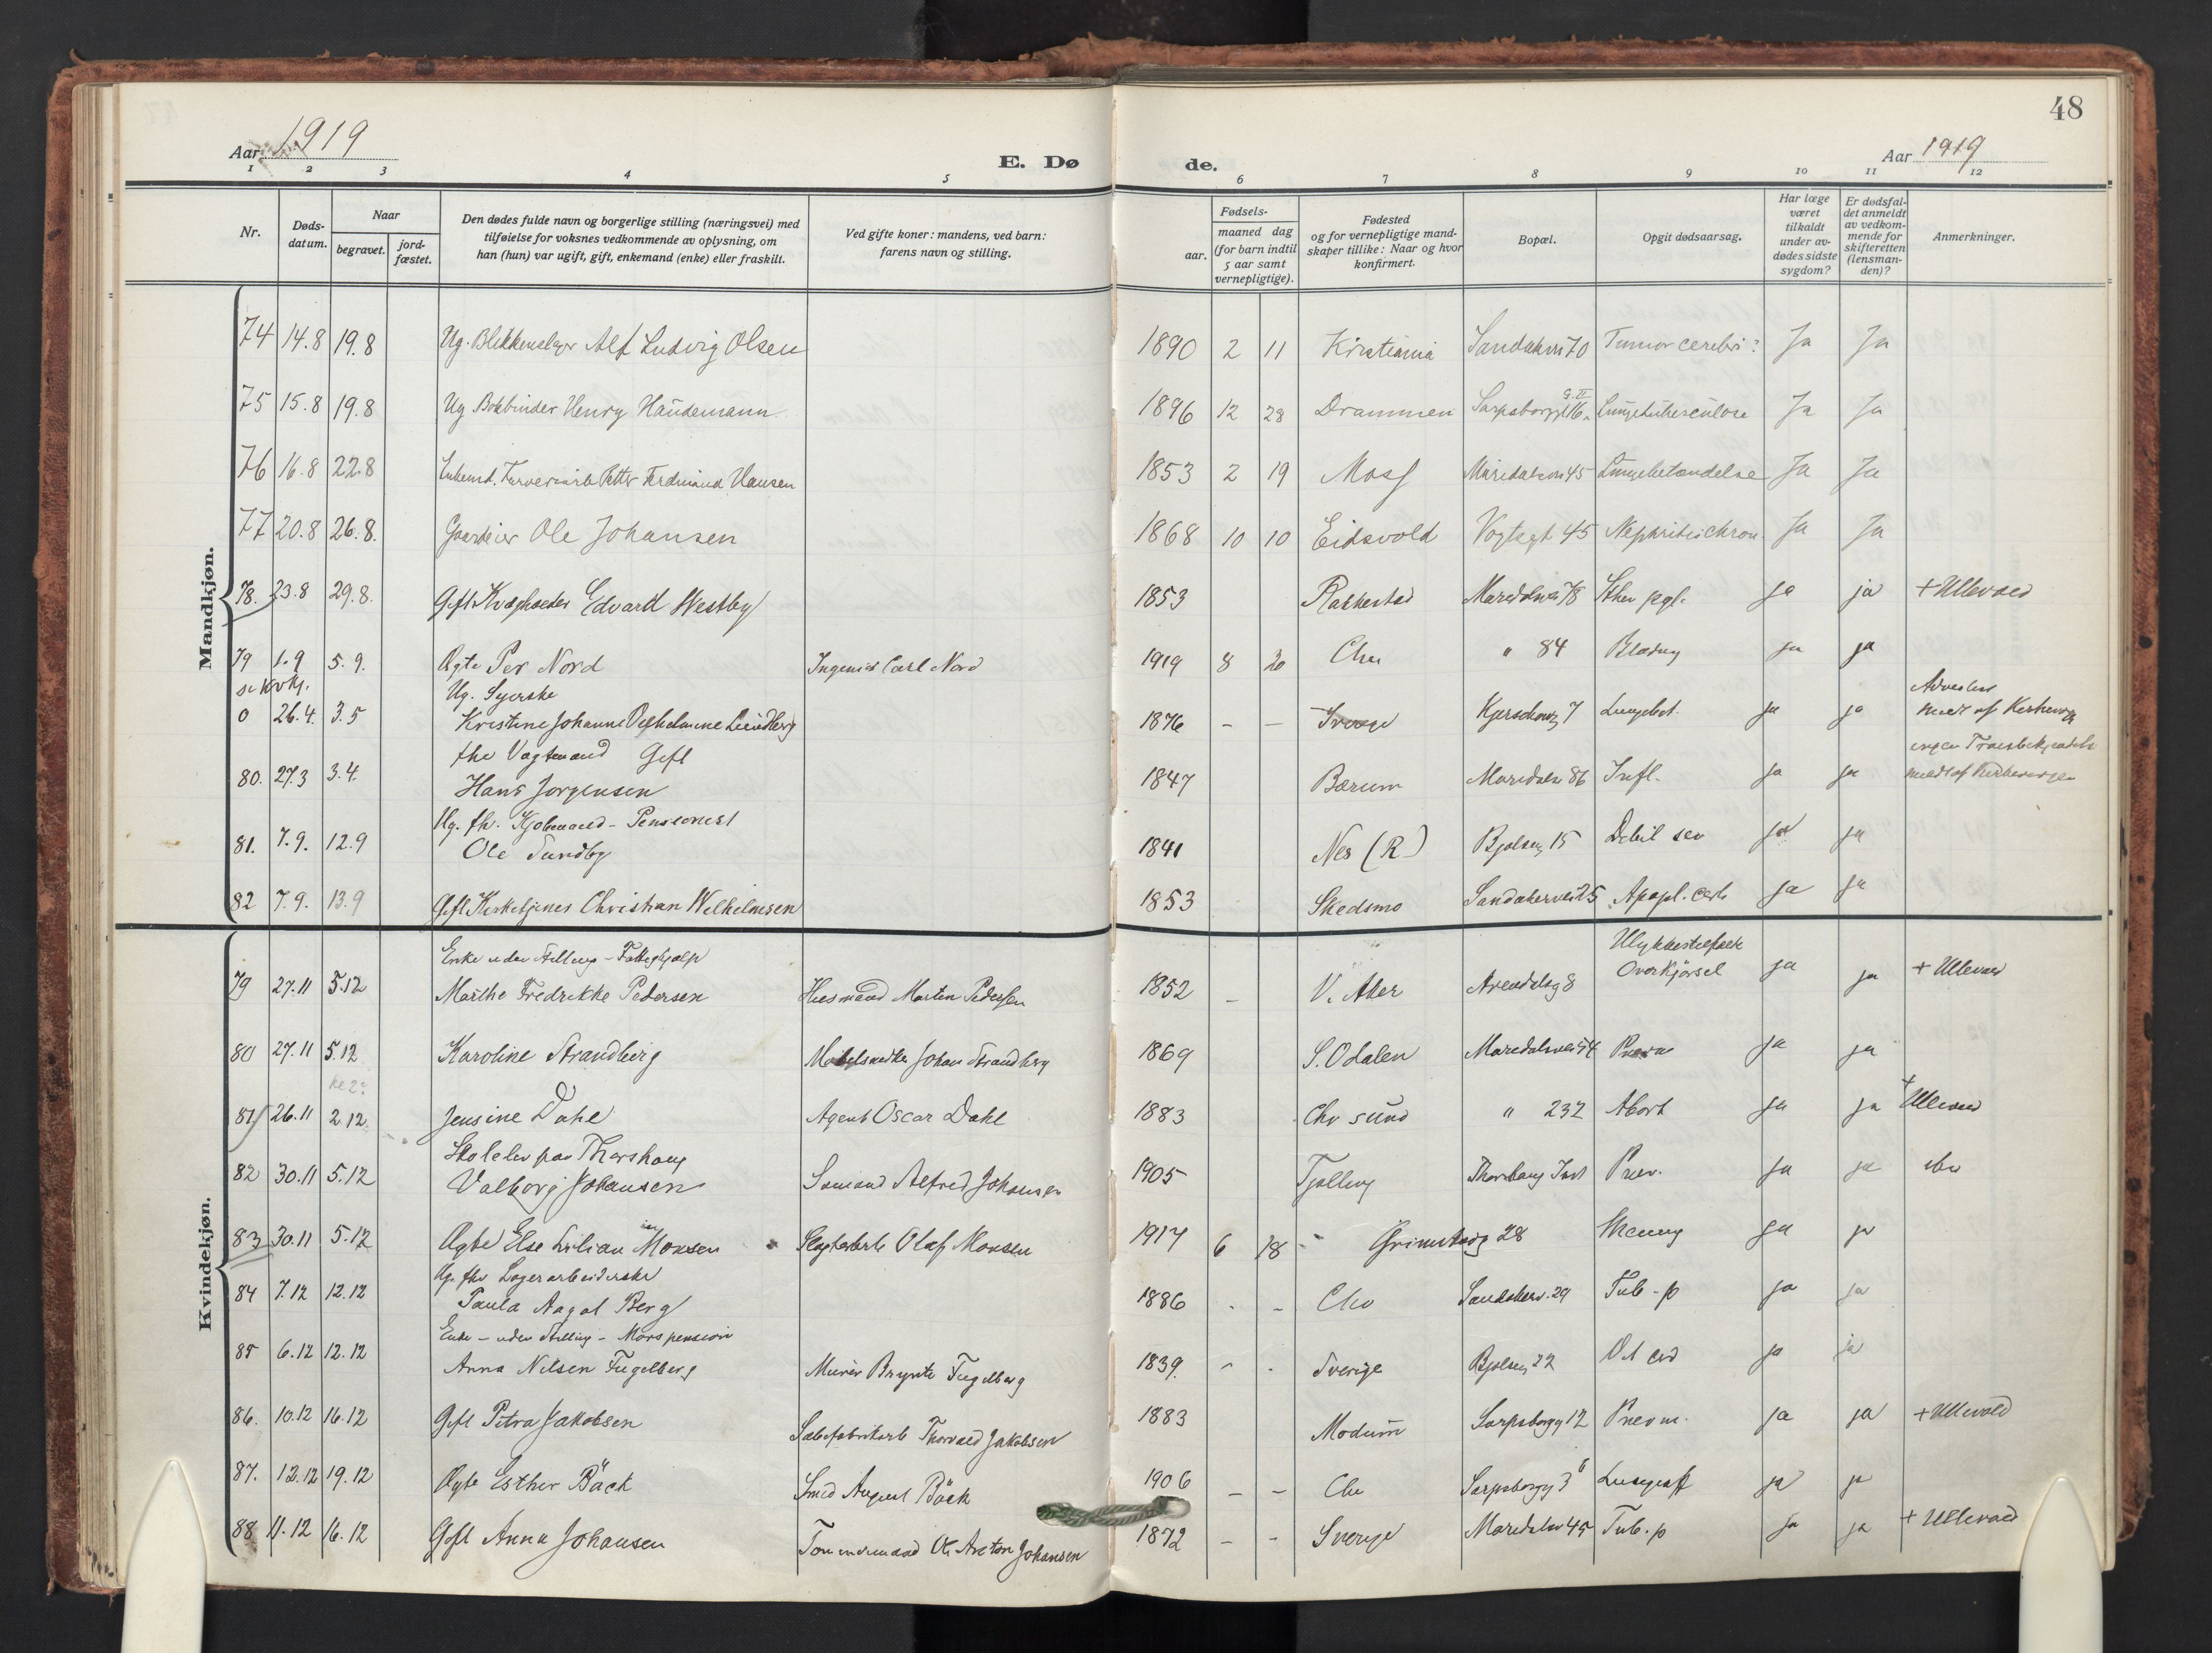 48
Aar 1919
E. Dø de.
Aar 1919
1 2 3 4 5 6 7 8 9 10 11 12
Nr.
Døds-datum.
Naar
begravet.
jord-fæstet.
Den dødes fulde navn og borgerlige stilling (næringsvei) med
tilføielse for voksnes vedkommende av oplysning, om
han (hun) var ugift, gift, enkemand (enke) eller fraskilt.
Ved gifte koner: mandens, ved barn:
farens navn og stilling.
Fødsels-
aar.
maaned dag
(for barn indtil
5 aar samt
vernepligtige).
Fødested
og for vernepligtige mand-
skaper tillike: Naar og hvor
konfirmert.
Bopæl.
Opgit dødsaarsag.
Har læge
været
tilkaldt
under av-
dødes sidste
sygdom?
Er dødsfal-
det anmeldt
av vedkom-
mende for
skifteretten
(lensman-
den)?
Anmerkninger.
Mandkjøn.
74 14.8 19.8 Ug. Blikkenslager Alf Ludvig Olsen 1890 2 11 Kristiania Sandakervn 70 Tumor cerebri? Ja Ja
75 15.8 19.8 Ug. Bokbinder Henry Haudemann 1896 12 28 Drammen Sarpsborggt 16 G. II Lungetuberculose Ja Ja
76 16.8 22.8 Enkemd. Farveriarb. Petter Ferdinand Hansen 1853 2 19 Moss Maridalsvn 45 Lungebetændelse Ja Ja
77 20.8 26.8. Gaardeier Ole Johansen 1868 10 10 Eidsvold Vogtsgt 45 Nephritis chron. Ja Ja
78. 23.8 29.8. Gift Edvard Westby 1853 Rakkestad Maridalsvei 78 ja ja + Ullevaal
79 1.9 5.9. Ægte Per Nord Ingeniør Carl Nord 1919 8 20 Chr. " 84 Blødning ja ja
se Kvkj.
Ug. Syerske
0 26.4. 3.5 Kristine Johanne Vilhelmine Lundberg 1876 - - Sverige 7 Lungebet. ja ja
fhv Vagtmand Gift
80. 27.3 3.4. Hans Jørgensen 1847 Bærum Maridalsv 86 Infl. ja ja
Ug. fhv. - Pensionist
81. 7.9. 12.9 Ole Sundby 1841 Nes (R) Bjølseng 15 Debil sen ja ja
82 7.9. 13.9 Gift Kirketjener Christian Wilhelmsen 1853 Skedsmo Sandakervei 25 Apopl. cerb ja ja
Kvindekjøn.
Enke uden Stilling - Fattighjælp
79 27.11 5.12 Marthe Fredrikke Pedersen Husmand Morten Pedersen 1852 - V. Aker Arendalsg 8 Ulykkestilfælde Overkjørsel ja ja + Ullevaal
80 27.11 5.12 Karoline Strandberg Møbelsnedker Johan Strandberg 1869 S. Odalen Maridalsvei 54 Pneum ja ja
kl 2?
81 26.11 2.12 Jensine Dahl Agent Oscar Dahl 1883 Chr sund " 232 Abort ja ja + Ullevaal
Skoleelev paa Thorshaug
82 30.11 5.12 Valborg Johansen Sømand Alfred Johansen 1905 Tjølling Thorshaug Inst Pnev. ja ja
83 30.11 5.12 Ægte Else Lilian Monsen Slagterarb Olaf Monsen 1917 6 18 " Grimstadg 28 Mening ja ja
Ug. fhv Lagerarbeiderske
84 7.12 12.12 Paula Aagot Berg 1886 - - Chr Sandakerv. 29 Tub-p ja ja
Enke - uden Stilling - Morspension
85 6.12 12.12 Anna Nilsen Fugelberg Murer Brynte Fugelberg 1839. - - Sverige Bjølseng 22 ja ja
86. 10.12 16.12 Gift Petra Jakobsen Thorvald Jakobsen 1883 Modum Sarpsborgg 12 Pneum. ja ja + Ullevold
87. 12.12 19.12 Ægte Esther Bäck Smed August Bäck 1906 - - Chr Sarpsborgg 3 ja ja
88 11.12 16.12 Gift Anna Johansen Tømmermand Ole Anton Johansen 1872 - - Sverige Maridalsv 45 Tub.p ja ja + Ullevaal